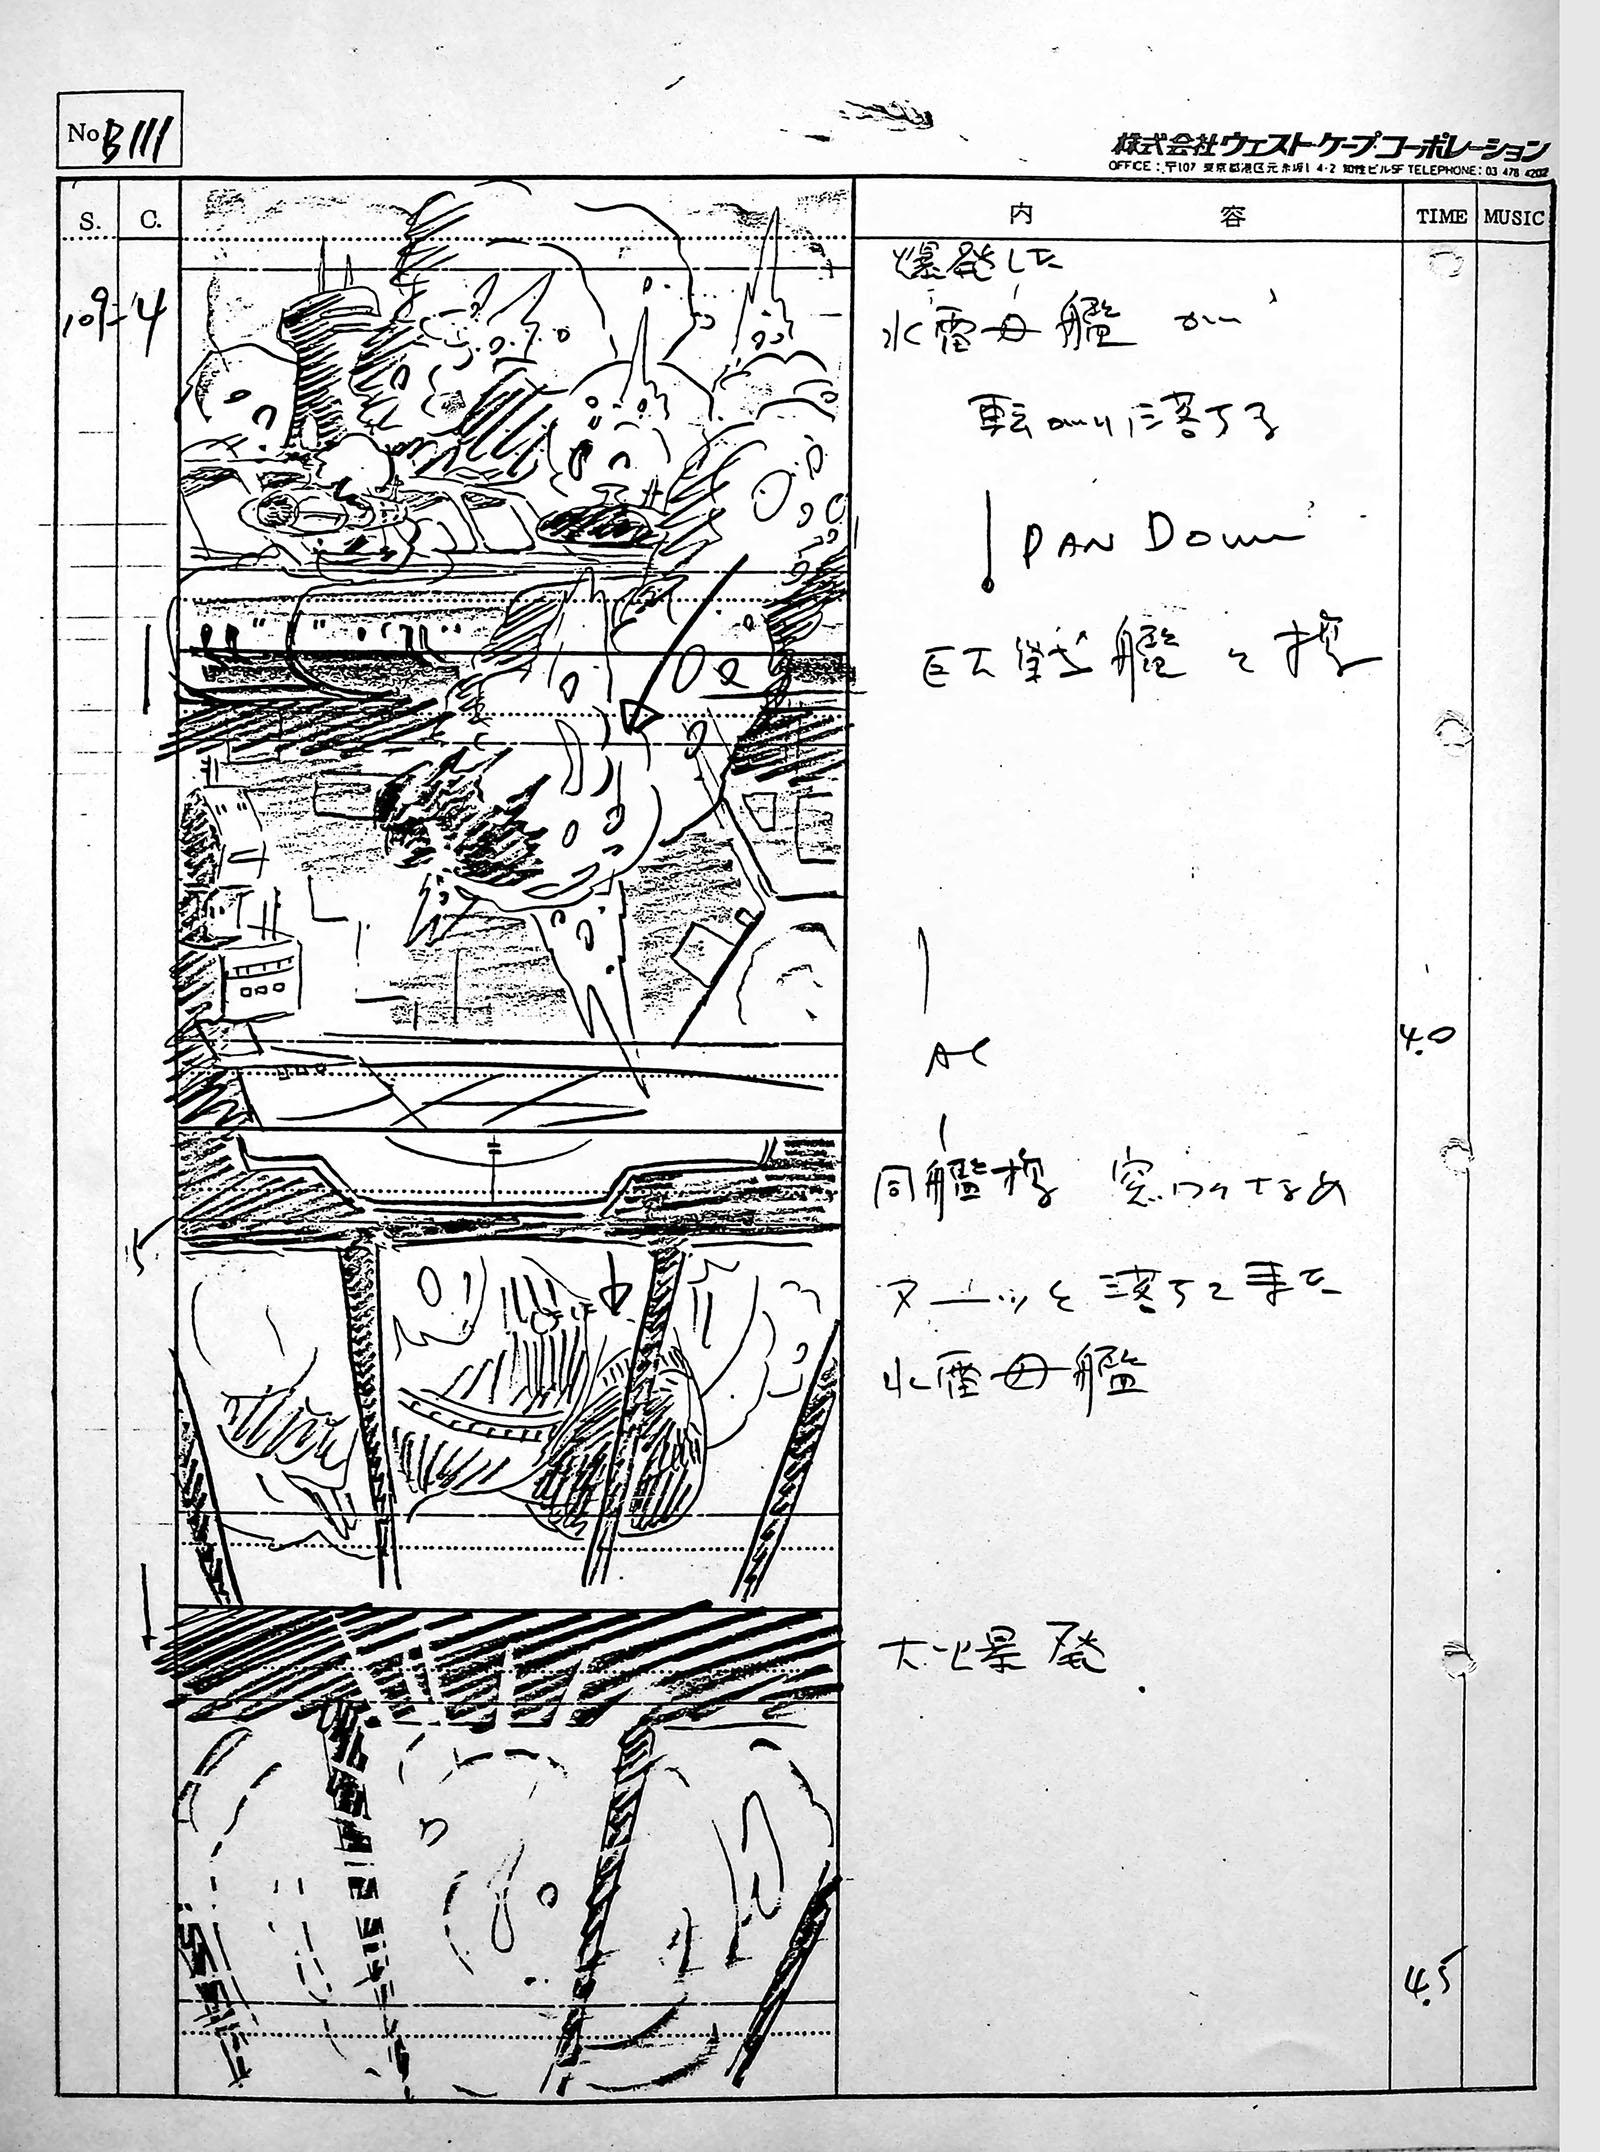 No B111
株式会社ウエスト・ケープ・コーポレーション
OFFICE：〒107 東京都港区元赤坂1 4-2 知性ビル5F TELEPHONE：03 478 4202
S. C. 内 容 TIME MUSIC
109-4
爆発した
水雷母艦が
落ちる
PAN DOWN
巨大戦艦
4.0
5
同艦橋 窓ワクナメ
ヌーッと落ちてきた
水雷母艦
大爆発
4.5